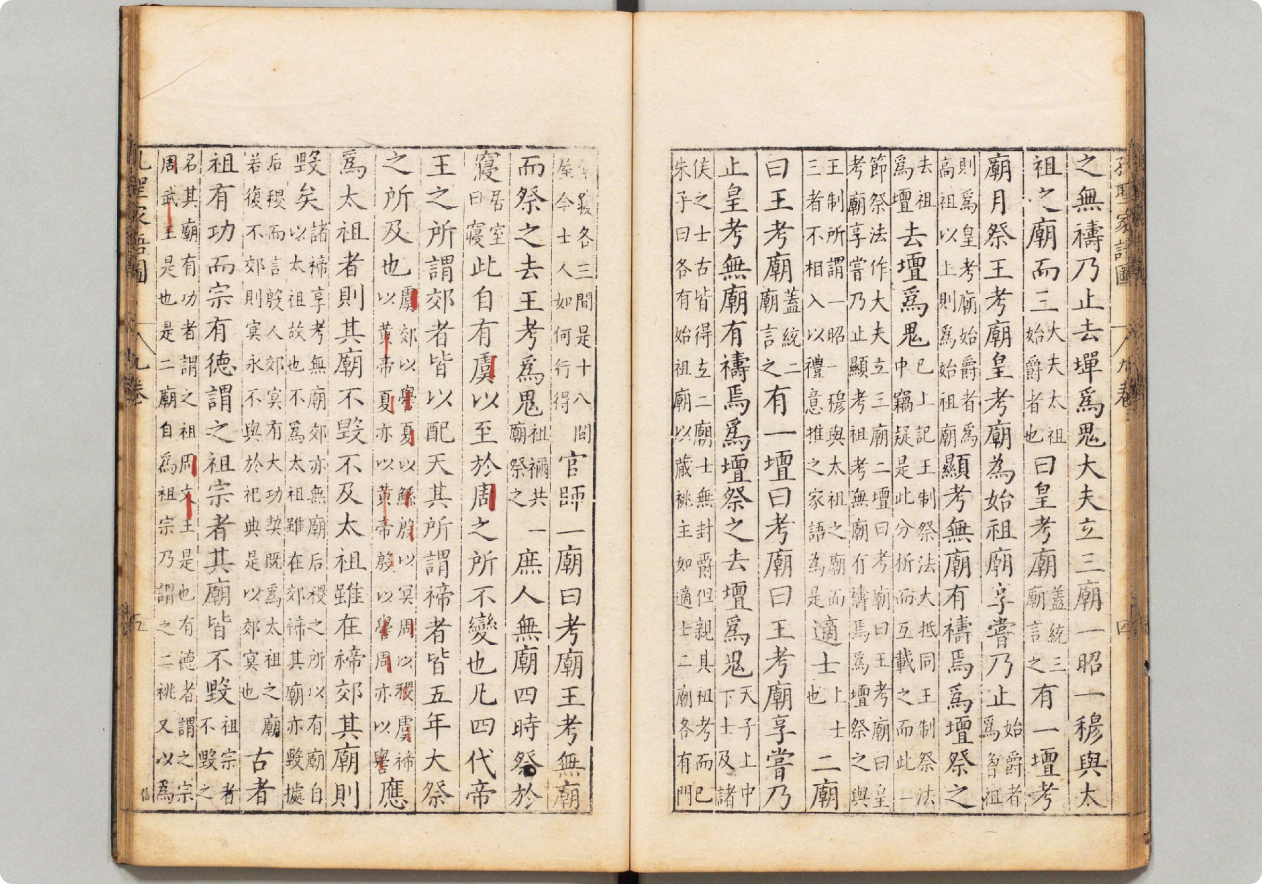 孔聖家語圖 八九卷 四
之無禱乃止去墠爲鬼大夫立三廟一昭一穆與太
祖之廟而三大夫太祖始爵者也曰皇考廟蓋統三廟言之有一壇考
廟月祭王考廟皇考廟為始祖廟享嘗乃止始爵者爲魯祖
則爲皇考廟始爵者爲高祖以上則爲始祖廟顯考無廟有禱焉爲壇祭之
去祖爲壇去壇爲鬼已上記王制祭法大抵同王制祭法中竊疑是此分析而互載之而此一
節祭法作大夫立三廟二壇曰考廟曰王考廟曰皇考廟享嘗乃止顯考祖考無廟有禱焉爲壇祭之與
王制所謂一昭一穆與太祖之廟而三者不相入以禮意推之家語為是適士上士也二廟
曰王考廟蓋統二廟言之有一壇曰考廟曰王考廟享嘗乃
止皇考無廟有禱焉爲壇祭之去壇爲鬼天子上中下士及諸
侯之士古皆得立二廟士無封爵但親具祖考而已朱子曰各有始祖廟以藏祧主如適士二廟各有門
寢各三間是十八間屋今士人如何行得官師一廟曰考廟王考無廟
而祭之去王考爲鬼祖禰共廟祭之一庶人無廟四時祭於
寢居室曰寢此自有虞以至於周之所不變也凡四代帝
王之所謂郊者皆以配天其所謂禘者皆五年大祭
之所及也虞郊以嚳夏以鯀殷以冥周以稷虞禘以黃帝夏亦以黃帝殷以嚳周亦以嚳應
爲太祖者則其廟不毀不及太祖雖在禘郊其廟則
毀矣諸禘享考無廟郊亦無廟后稷之所以有廟自以太祖故也不爲太祖雖在郊禘其廟亦毀據
后稷而言殷人郊冥有大功契既爲太祖之廟若復不郊則冥永不與於祀典是以郊冥也古者
祖有功而宗有德謂之祖宗者其廟皆不毀祖宗者不毀之
名其廟有功者謂之祖周文王是也有德者謂之宗周武王是也是二廟自爲祖宗乃謂之二祧又以爲
孔聖家語圖 八九卷 五